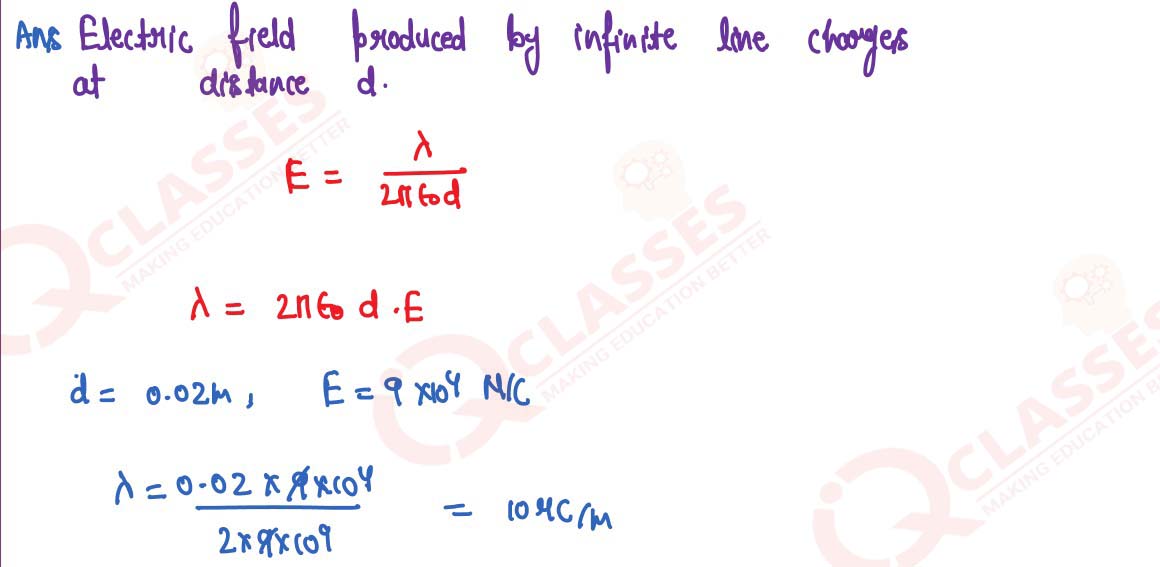 Ans Electric field produced by infinite line charges
at distance d.
E = λ / 2πε₀d
λ = 2πε₀ d . E
d = 0.02m , E = 9 ×10⁴ N/C
λ = 0.02 × 9×10⁴ / 2×9×10⁹ = 10 μC/m
QCLASSES
MAKING EDUCATION BETTER
QCLASSES
MAKING EDUCATION BETTER
QCLASSES
MAKING EDUCATION BETTER